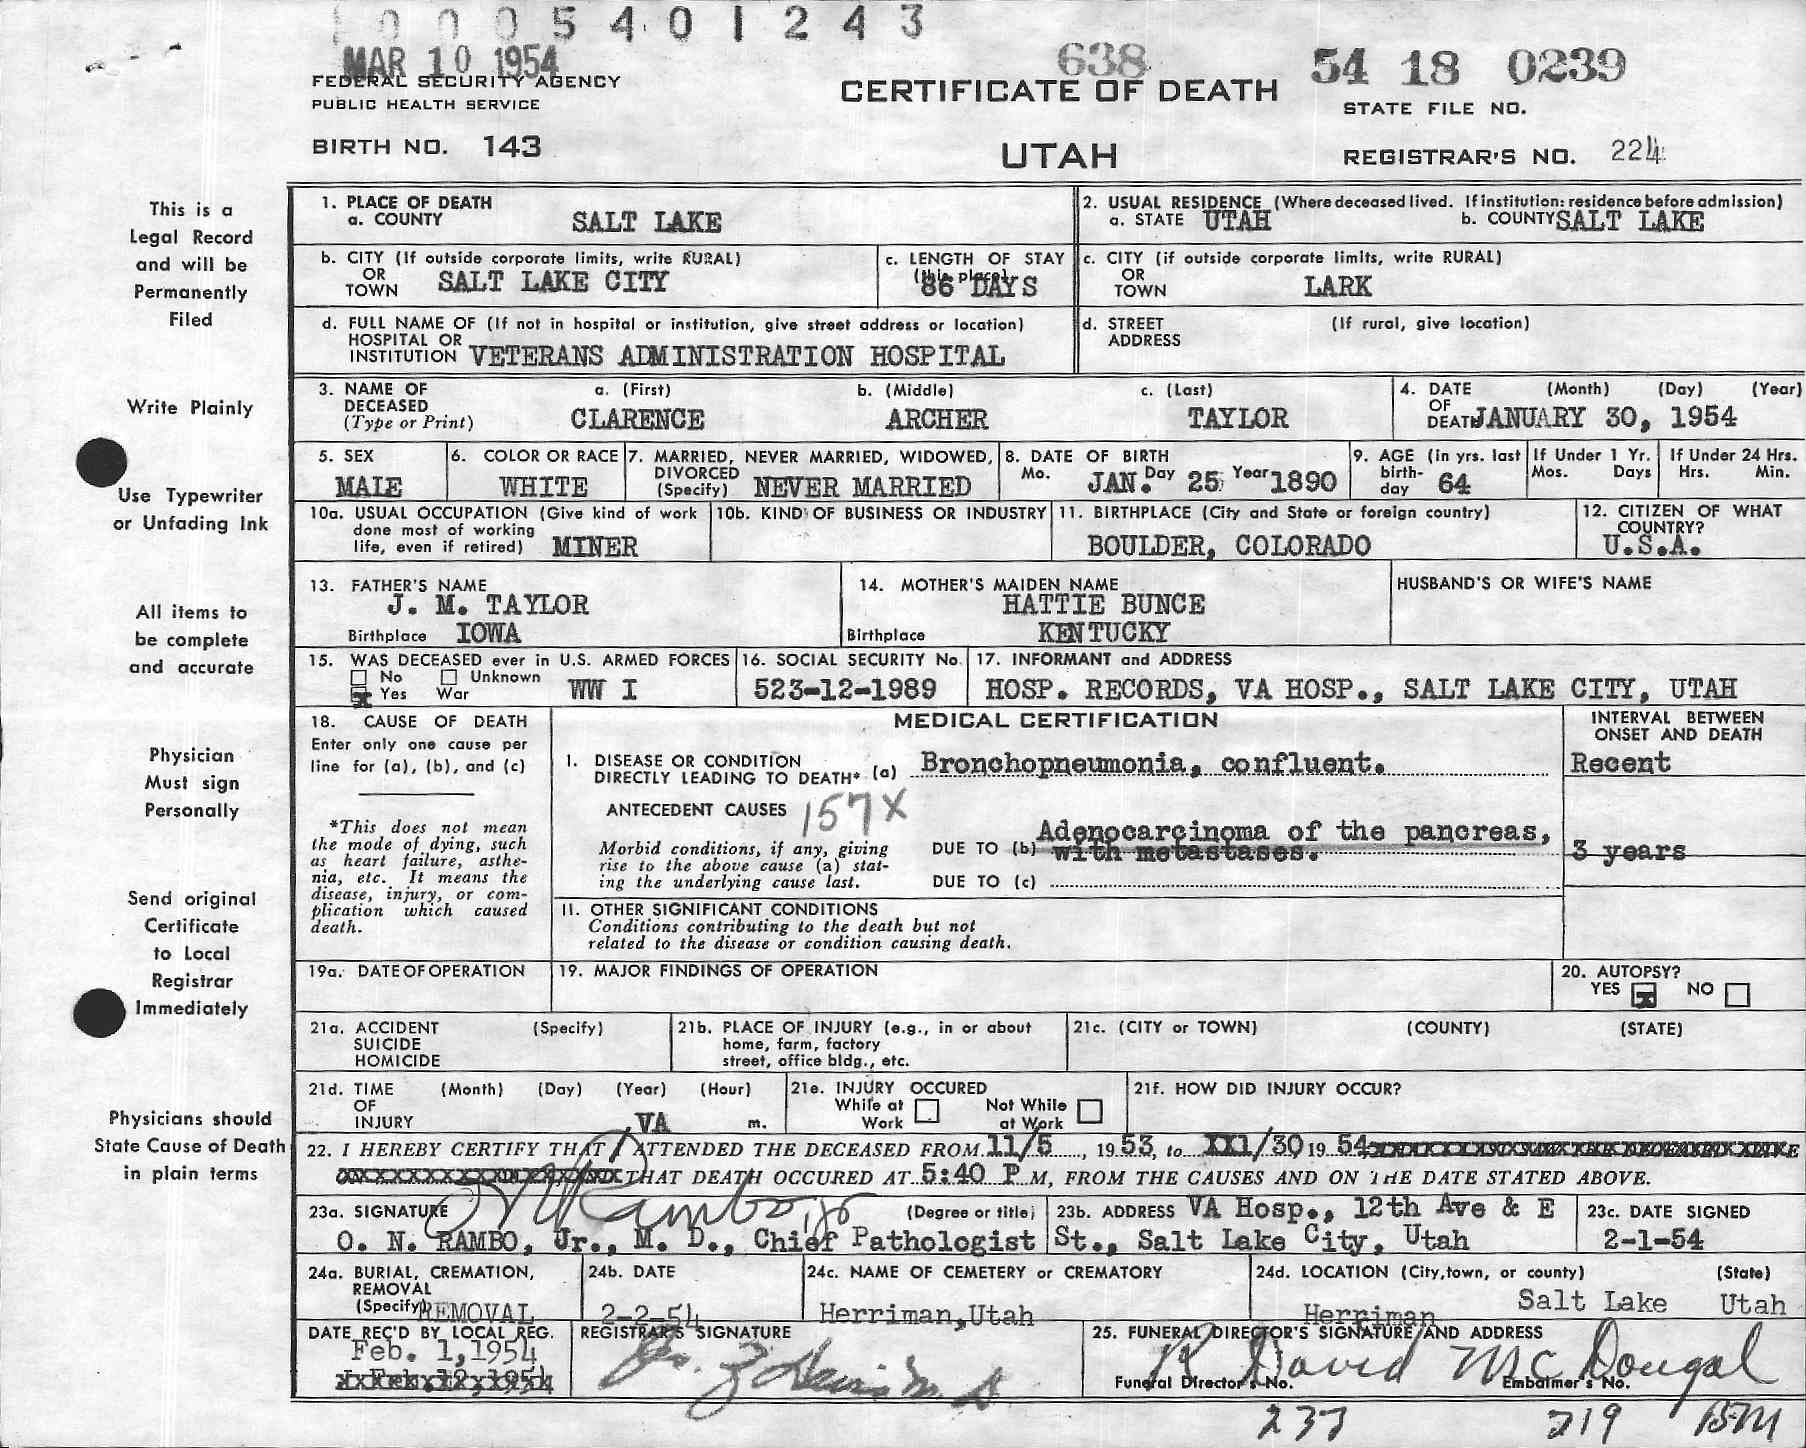 0005401243
MAR 10 1954
638
54 18 0239
FEDERAL SECURITY AGENCY
PUBLIC HEALTH SERVICE
CERTIFICATE OF DEATH
STATE FILE NO.
BIRTH NO. 143
UTAH
REGISTRAR'S NO. 224
This is a
Legal Record
and will be
Permanently
Filed
Write Plainly
Use Typewriter
or Unfading Ink
All items to
be complete
and accurate
Physician
Must sign
Personally
Send original
Certificate
to Local
Registrar
Immediately
Physicians should
State Cause of Death
in plain terms
1. PLACE OF DEATH
a. COUNTY SALT LAKE
2. USUAL RESIDENCE (Where deceased lived. If institution: residence before admission)
a. STATE UTAH b. COUNTY SALT LAKE
b. CITY (If outside corporate limits, write RURAL)
OR
TOWN SALT LAKE CITY
c. LENGTH OF STAY
(this place)
86 DAYS
c. CITY (if outside corporate limits, write RURAL)
OR
TOWN LARK
d. FULL NAME OF (If not in hospital or institution, give street address or location)
HOSPITAL OR
INSTITUTION VETERANS ADMINISTRATION HOSPITAL
d. STREET (If rural, give location)
ADDRESS
3. NAME OF DECEASED (Type or Print)
a. (First) b. (Middle) c. (Last)
CLARENCE ARCHER TAYLOR
4. DATE (Month) (Day) (Year)
OF
DEATH JANUARY 30, 1954
5. SEX
MALE
6. COLOR OR RACE
WHITE
7. MARRIED, NEVER MARRIED, WIDOWED,
DIVORCED
(Specify) NEVER MARRIED
8. DATE OF BIRTH
Mo. JAN. Day 25 Year 1890
9. AGE (in yrs. last
birth-
day 64
If Under 1 Yr.
Mos. Days
If Under 24 Hrs.
Hrs. Min.
10a. USUAL OCCUPATION (Give kind of work
done most of working
life, even if retired) MINER
10b. KIND OF BUSINESS OR INDUSTRY
11. BIRTHPLACE (City and State or foreign country)
BOULDER, COLORADO
12. CITIZEN OF WHAT
COUNTRY?
U.S.A.
13. FATHER'S NAME
J. M. TAYLOR
Birthplace IOWA
14. MOTHER'S MAIDEN NAME
HATTIE BUNCE
Birthplace KENTUCKY
HUSBAND'S OR WIFE'S NAME
15. WAS DECEASED ever in U.S. ARMED FORCES
No Unknown
Yes War WW I
16. SOCIAL SECURITY No.
523-12-1989
17. INFORMANT and ADDRESS
HOSP. RECORDS, VA HOSP., SALT LAKE CITY, UTAH
18. CAUSE OF DEATH
Enter only one cause per
line for (a), (b), and (c)
*This does not mean
the mode of dying, such
as heart failure, asthe-
nia, etc. It means the
disease, injury, or com-
plication which caused
death.
MEDICAL CERTIFICATION
INTERVAL BETWEEN
ONSET AND DEATH
I. DISEASE OR CONDITION
DIRECTLY LEADING TO DEATH* (a) Bronchopneumonia, confluent.
Recent
ANTECEDENT CAUSES 157X
Morbid conditions, if any, giving
rise to the above cause (a) stat-
ing the underlying cause last.
DUE TO (b) Adenocarcinoma of the pancreas,
with metastases.
3 years
DUE TO (c)
II. OTHER SIGNIFICANT CONDITIONS
Conditions contributing to the death but not
related to the disease or condition causing death.
19a. DATE OF OPERATION
19. MAJOR FINDINGS OF OPERATION
20. AUTOPSY?
YES x NO
21a. ACCIDENT (Specify)
SUICIDE
HOMICIDE
21b. PLACE OF INJURY (e.g., in or about
home, farm, factory
street, office bldg., etc.
21c. (CITY or TOWN) (COUNTY) (STATE)
21d. TIME (Month) (Day) (Year) (Hour)
OF
INJURY m.
21e. INJURY OCCURED
While at Work
Not While at Work
21f. HOW DID INJURY OCCUR?
VA
22. I HEREBY CERTIFY THAT I ATTENDED THE DECEASED FROM 11/5, 1953, to XX1/30 1954
THAT DEATH OCCURED AT 5:40 P M, FROM THE CAUSES AND ON THE DATE STATED ABOVE.
23a. SIGNATURE O N Rambo, Jr (Degree or title)
O. N. RAMBO, Jr., M. D., Chief Pathologist
23b. ADDRESS VA Hosp., 12th Ave & E
St., Salt Lake City, Utah
23c. DATE SIGNED
2-1-54
24a. BURIAL, CREMATION,
REMOVAL
(Specify) REMOVAL
24b. DATE
2-2-54
24c. NAME OF CEMETERY or CREMATORY
Herriman, Utah
24d. LOCATION (City, town, or county) (State)
Herriman Salt Lake Utah
DATE REC'D BY LOCAL REG.
Feb. 1, 1954
REGISTRAR'S SIGNATURE
25. FUNERAL DIRECTOR'S SIGNATURE AND ADDRESS
R David McDougal
Funeral Director's No. Embalmer's No.
237 219 BM